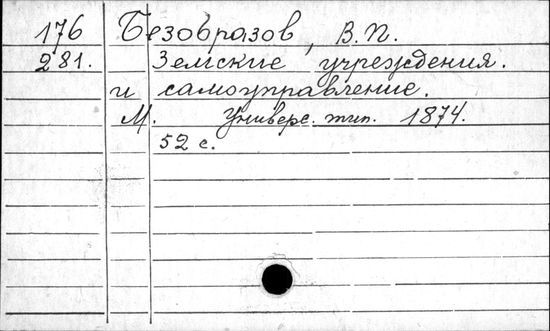 176 Безобразов, В.П.
281. Земские учреждения.
и самоуправление.
М. Универс. тип. 1874.
52 с.